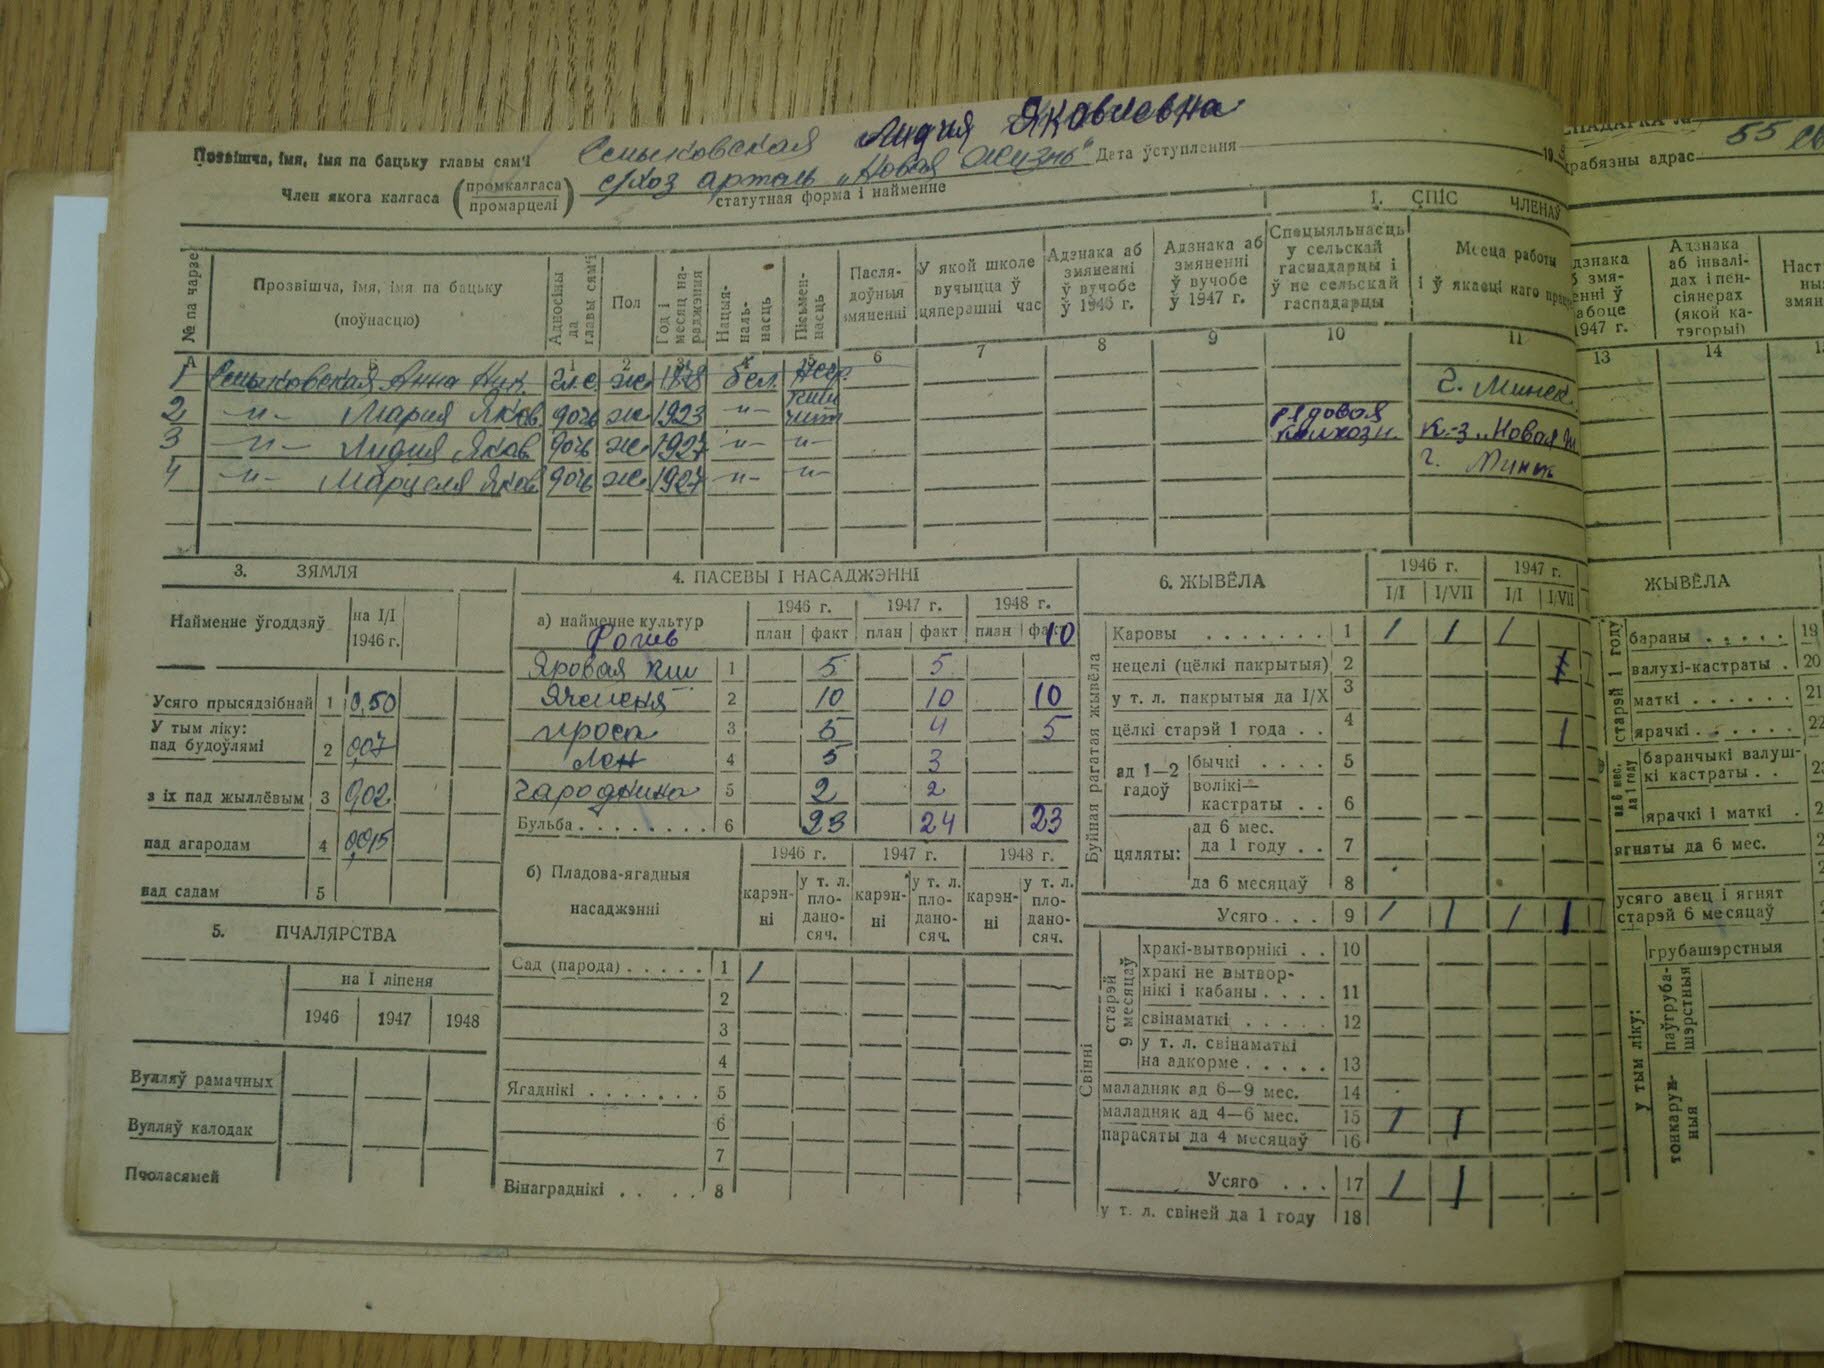 Прозвішча, імя, імя па бацьку главы сям'і Семыковская Лидия Яковлевна
Член якога калгаса (промкалгаса промарцелі) с/хоз артель „Новая Жизнь" Дата ўступлення 19
статутная форма і найменне
1. СПІС ЧЛЕНАЎ
№ па чарзе
Прозвішча, імя, імя па бацьку (поўнасцю)
Адносіны да главы сям'і
Пол
Год і месяц нараджэння
Нацыянальнасць
Пісьменнасць
Пасля-доўныя змяненні
У якой школе вучыцца ў цяперашні час
Адзнака аб змяненні ў вучобе ў 1946 г.
Адзнака аб змяненні ў вучобе ў 1947 г.
Спецыяльнасць у сельскай гаспадарцы і ў не сельскай гаспадарцы
Месца работы і ў якасці каго
А Б 1 2 3 4 5 6 7 8 9 10 11
1 Семыковская Анна Ник. гл.с. ж 1878 бел. негр. г. Минск
2 -"- Мария Яков. дочь ж 1923 -"- чит
3 -"- Лидия Яков дочь ж 1927 -"- -"- рядовая колхозн. к-з „Новая
4 -"- Марцеля Яков. дочь ж 1927 -"- -"- г. Минск
3. ЗЯМЛЯ
Найменне ўгоддзяў на I/I 1946 г.
Усяго прысядзібнай 1 0,50
У тым ліку:
пад будоўлямі 2 0,07
з іх пад жыллёвым 3 0,02
пад агародам 4 0,015
пад садам 5
5. ПЧАЛЯРСТВА
на I ліпеня
1946 1947 1948
Вулляў рамачных
Вулляў калодак
Пчоласямей
4. ПАСЕВЫ І НАСАДЖЭННІ
а) найменне культур 1946 г. 1947 г. 1948 г.
план факт план факт план факт
10
Яровая 1 5 5
Ячменя 2 10 10 10
проса 3 5 4 5
Лен 4 5 3
гароднина 5 2 2
Бульба 6 23 24 23
б) Пладова-ягадныя насаджэнні
1946 г. 1947 г. 1948 г.
карэн-ні у т. л. пло-дано-сяч. карэн-ні у т. л. пло-дано-сяч. карэн-ні у т. л. пло-дано-сяч.
Сад (парода) 1 1
2
3
4
Ягаднікі 5
6
7
Вінаграднікі 8
6. ЖЫВЁЛА 1946 г. 1947 г.
I/I I/VII I/I I/VII
Буйная рагатая жывёла
Каровы 1 1 1 1
нецелі (цёлкі пакрытыя) 2
у т. л. пакрытыя да I/X 3
цёлкі старэй 1 года 4 1
ад 1—2 гадоў
бычкі 5
волікі—кастраты 6
цяляты:
ад 6 мес. да 1 году 7
да 6 месяцаў 8
Усяго 9 1 1 1 1
Свінні
старэй 9 месяцаў
хракі-вытворнікі 10
хракі не вытвор-нікі і кабаны 11
свінаматкі 12
у т. л. свінаматкі на адкорме 13
маладняк ад 6—9 мес. 14
маладняк ад 4—6 мес. 15 1 1
парасяты да 4 месяцаў 16
Усяго 17 1 1
у т. л. свіней да 1 году 18
адрас 55
Адзнака аб інвалі-дах і пен-сіянерах (якой ка-тэгорыі)
1947 г.
13 14
ЖЫВЁЛА
старэй 1 году
бараны 19
валухі-кастраты 20
маткі 21
ярачкі 22
ад 6 мес. да 1 году
баранчыкі валуш-кі кастраты
ярачкі і маткі
ягняты да 6 мес.
усяго авец і ягнят старэй 6 месяцаў
у тым ліку:
грубашэрстныя
паўгруба-шэрстныя
тонкарун-ныя